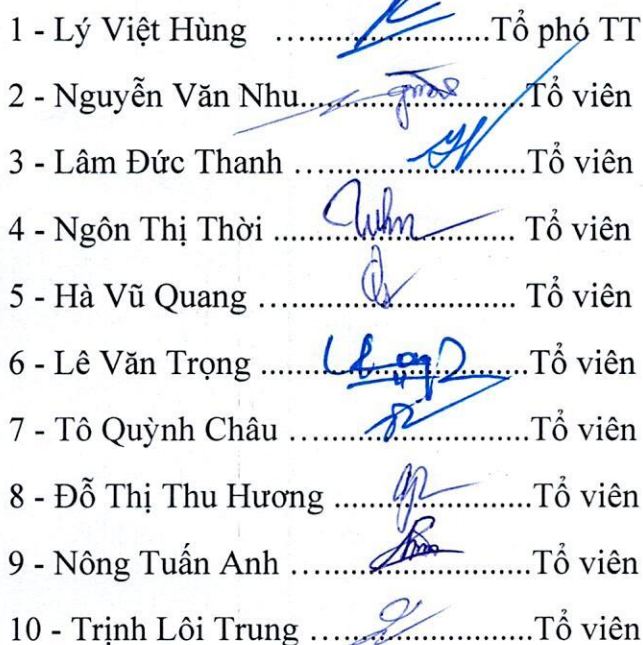 1 - Lý Việt Hùng ........................Tổ phó TT
2 - Nguyễn Văn Nhu........................Tổ viên
3 - Lâm Đức Thanh ........................Tổ viên
4 - Ngôn Thị Thời ........................ Tổ viên
5 - Hà Vũ Quang ........................ Tổ viên
6 - Lê Văn Trọng ........................Tổ viên
7 - Tô Quỳnh Châu ........................Tổ viên
8 - Đỗ Thị Thu Hương ....................Tổ viên
9 - Nông Tuấn Anh ........................Tổ viên
10 - Trịnh Lôi Trung ......................Tổ viên